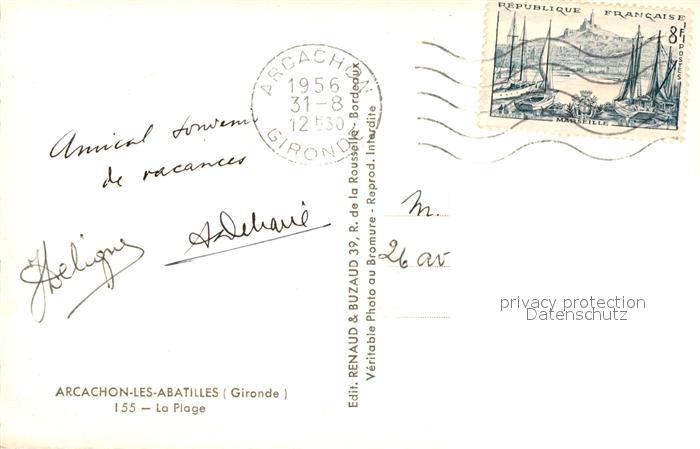 RÉPUBLIQUE FRANÇAISE
8F
POSTES
MARSEILLE
ARCACHON
1956
31-8
12H30
GIRONDE
Amical souvenir
de vacances
M.
26 av
Edit. RENAUD & BUZAUD 39, R. de la Rousselle - Bordeaux
Véritable Photo au Bromure - Reprod. Interdite
privacy protection
Datenschutz
ARCACHON-LES-ABATILLES (Gironde)
155 — La Plage